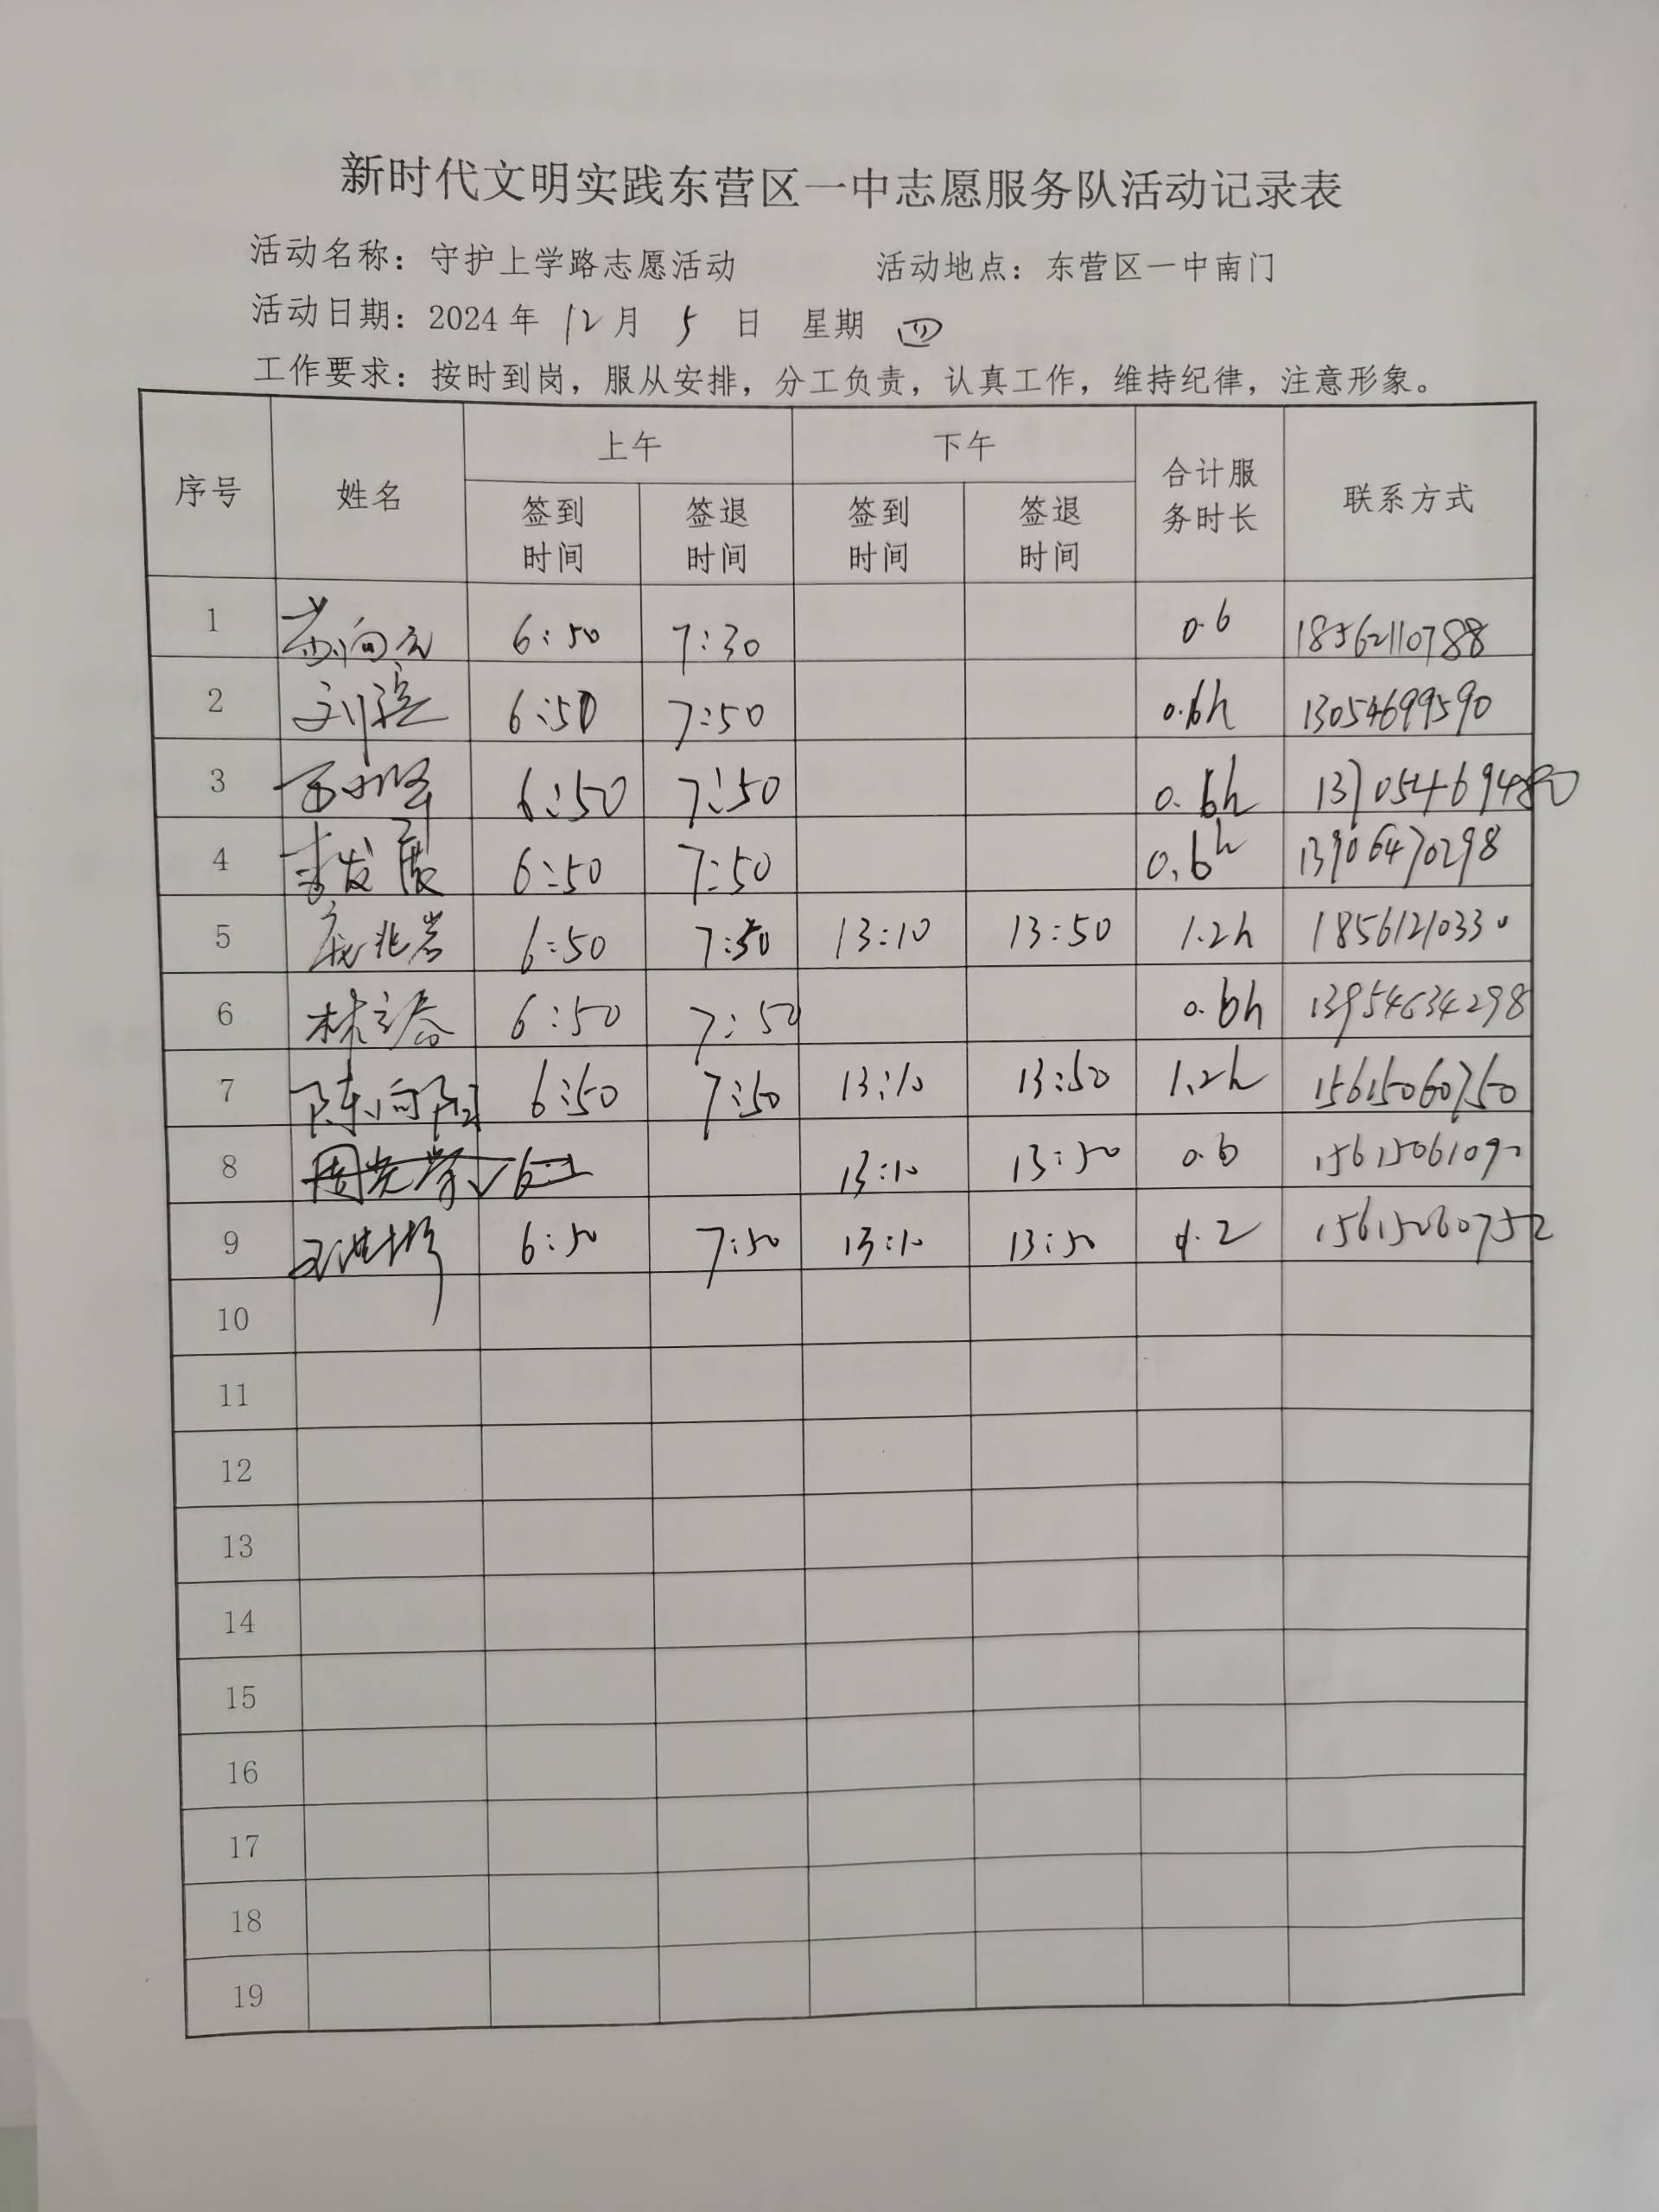 新时代文明实践东营区一中志愿服务队活动记录表
活动名称：守护上学路志愿活动 活动地点：东营区一中南门
活动日期：2024年 12月 5 日 星期 四
工作要求：按时到岗，服从安排，分工负责，认真工作，维持纪律，注意形象。
序号 姓名 上午 下午 合计服务时长 联系方式
签到时间 签退时间 签到时间 签退时间
1 6:50 7:30 0.6 18562110788
2 刘滨 6:50 7:50 0.6h 13054699590
3 6:50 7:50 0.6h
4 李发展 6:50 7:50 0.6h 13906470298
5 庞兆岩 6:50 7:50 13:10 13:50 1.2h 18561210330
6 林 6:50 7:50 0.6h 13954634298
7 陈向阳 6:50 7:50 13:10 13:50 1.2h 15615060750
8 13:10 13:50 0.6
9 6:50 7:50 13:10 13:50 1.2 15615060752
10
11
12
13
14
15
16
17
18
19